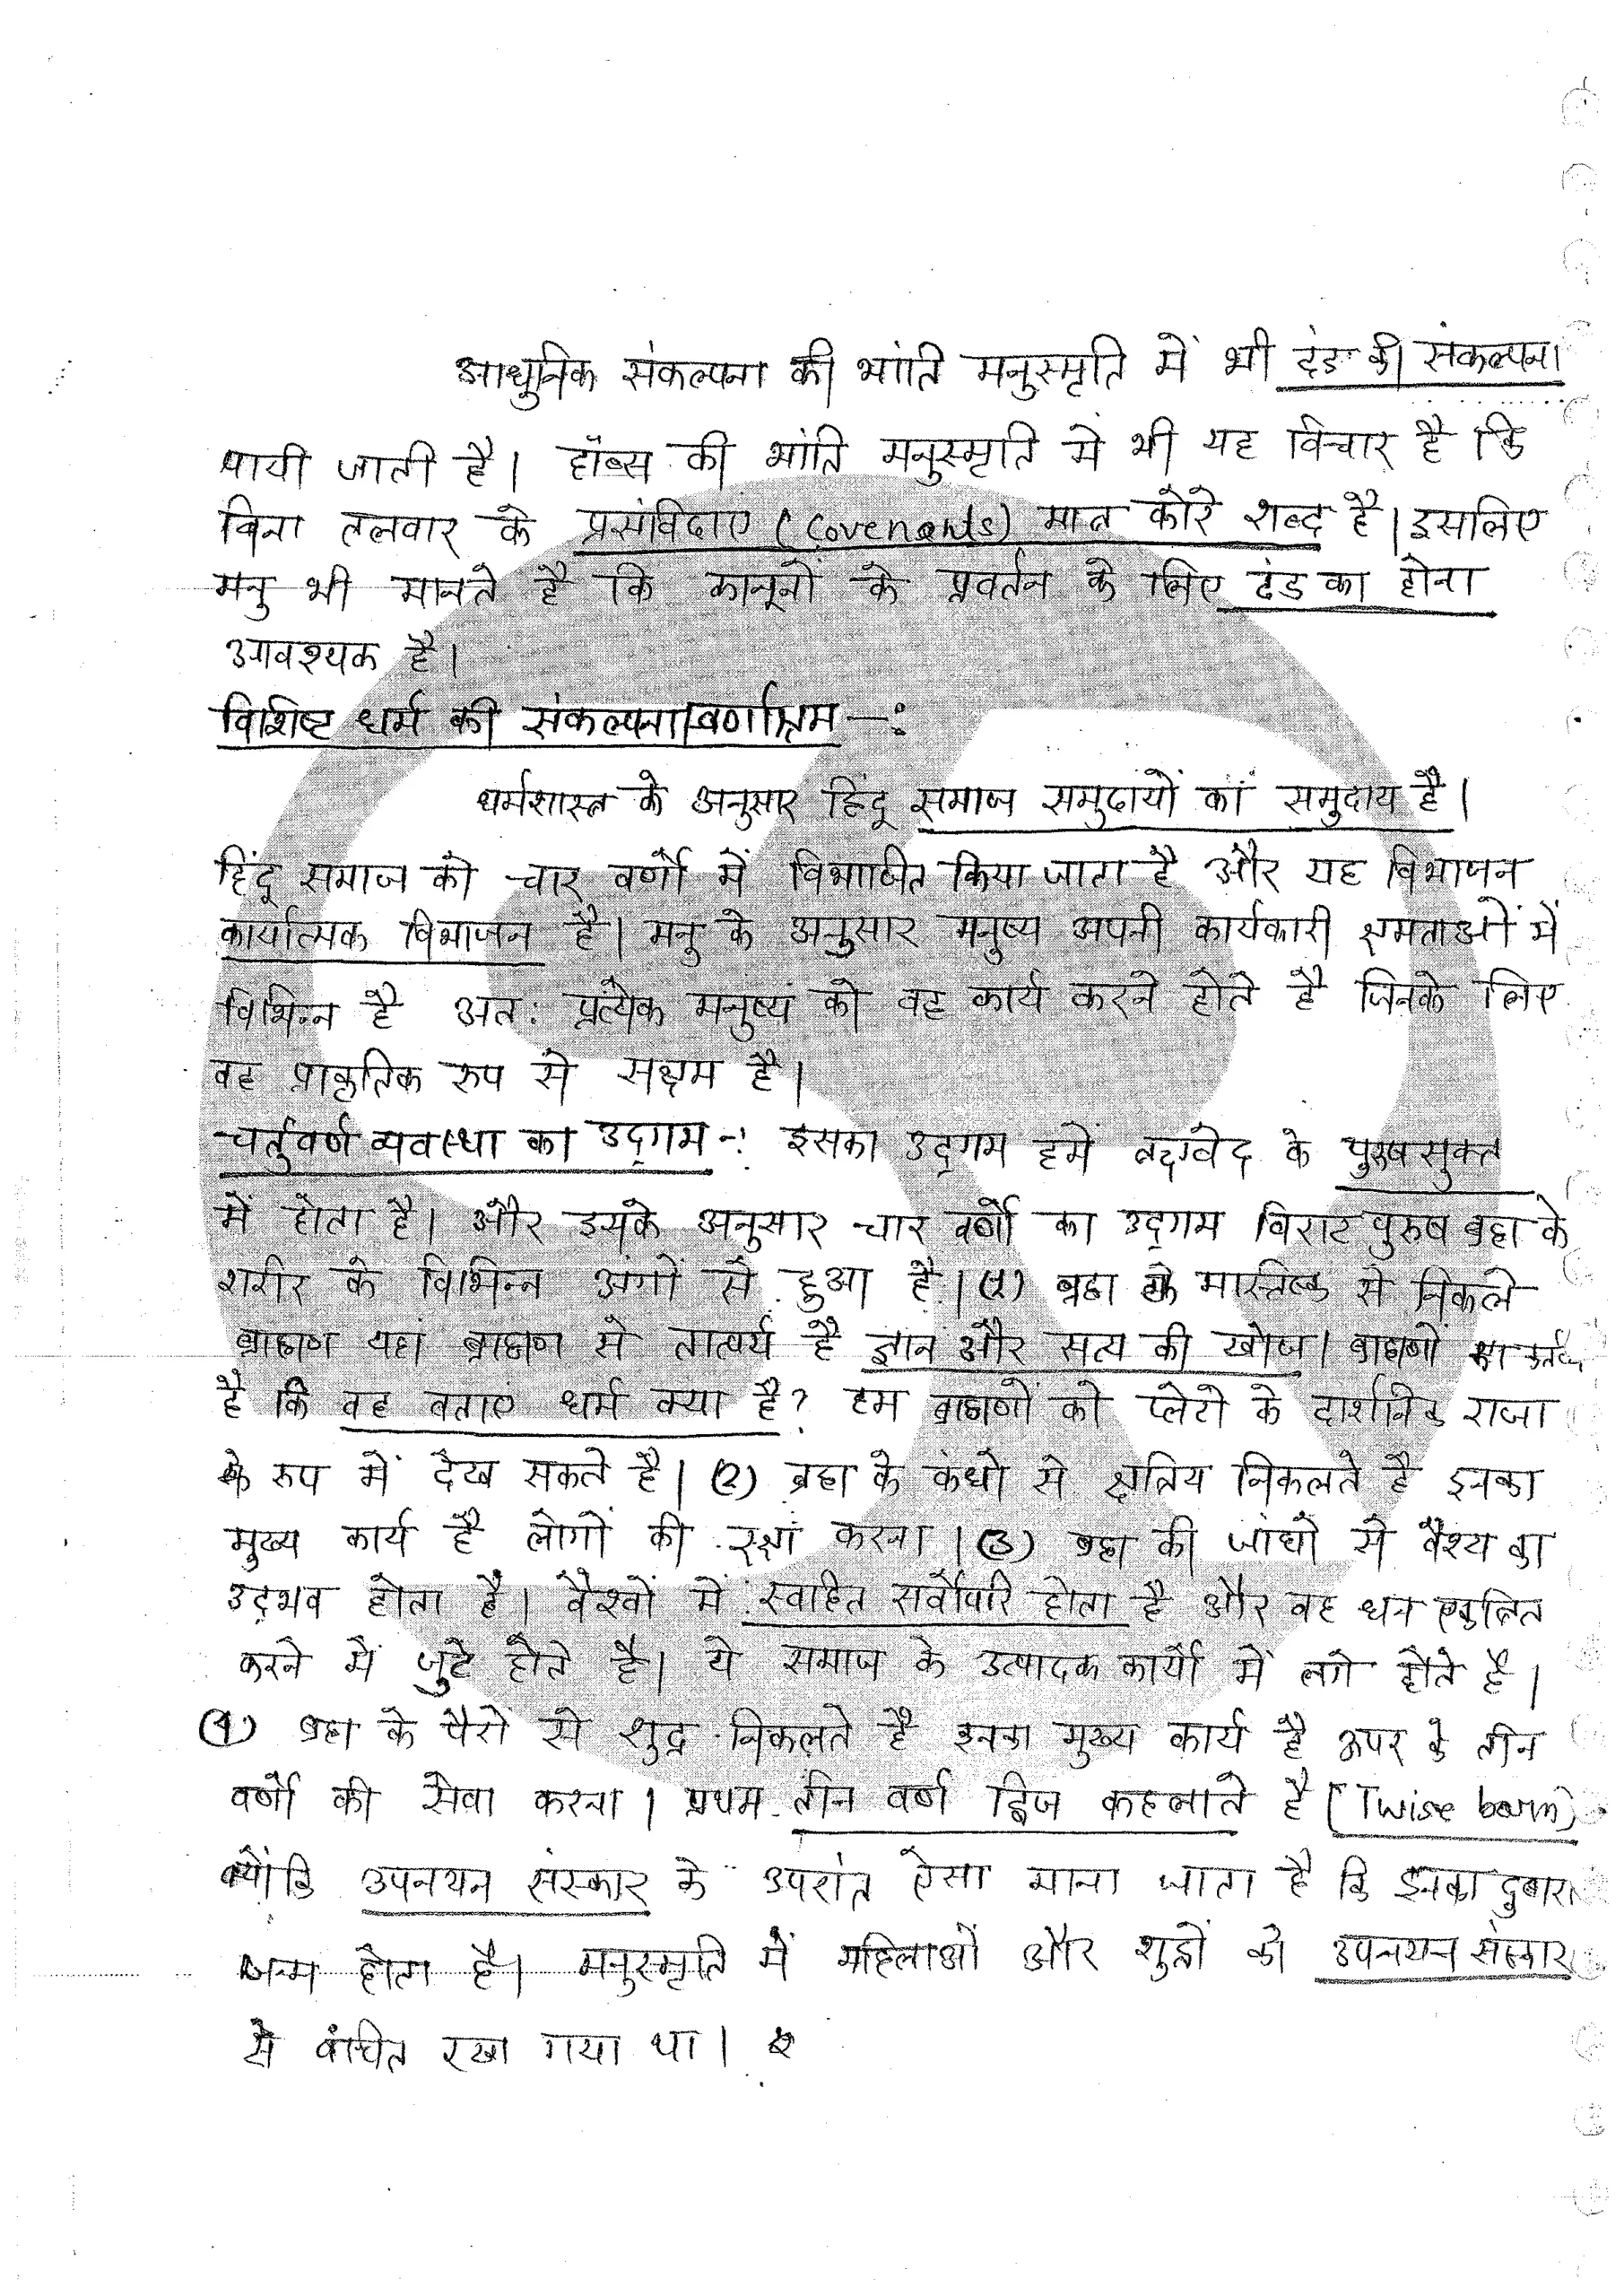 आधुनिक संकल्पना की भांति मनुस्मृति में भी दंड की संकल्पना
पायी जाती है। हॉब्स की भांति मनुस्मृति में भी यह विचार है कि
बिना तलवार के प्रसंविदाएं (Covenants) मात्र कोरे शब्द है। इसलिए
मनु भी मानते है कि कानूनों के प्रवर्तन के लिए दंड का होना
आवश्यक है।
विशिष्ट धर्म की संकल्पना/वर्णाश्रम –:
धर्मशास्त्र के अनुसार हिंदू समाज समुदायों का समुदाय है।
हिंदू समाज को चार वर्णो में विभाजित किया जाता है और यह विभाजन
कार्यात्मक विभाजन है। मनु के अनुसार मनुष्य अपनी कार्यकारी क्षमताओं में
विभिन्न है अतः प्रत्येक मनुष्य को वह कार्य करने होते है जिनके लिए
वह प्राकृतिक रूप से सक्षम है।
चर्तुवर्ण व्यवस्था का उद्गम -: इसका उद्गम हमें ऋग्वेद के पुरुषसुक्त
में होता है। और इसके अनुसार चार वर्णो का उद्गम विराट पुरुष ब्रह्म के
शरीर के विभिन्न अंगों से हुआ है। (1) ब्रह्म के मास्तिष्क से निकले
ब्राह्मण यहां ब्राह्मण से तात्पर्य है ज्ञान और सत्य की खोज। ब्राह्मणों का कर्तव्य
है कि वह बताएं धर्म क्या है? हम ब्राह्मणों को प्लेटो के दार्शनिक राजा
के रुप में देख सकते है। (2) ब्रह्म के कंधो से क्षत्रिय निकलते है इनका
मुख्य कार्य है लोगों की रक्षा करना। (3) ब्रह्म की जांघो से वैश्य का
उद्भव होता है। वैश्यों में स्वहित सर्वोपरि होता है और वह धन एकत्रित
करने में जुटे होते है। ये समाज के उत्पादक कार्यो में लगे होते है।
(4) ब्रह्म के पैरों से शुद्र निकलते है इनका मुख्य कार्य है ऊपर के तीन
वर्णो की सेवा करना। प्रथम तीन वर्ण द्विज कहलाते है (Twice born)
क्योंकि उपनयन संस्कार के उपरांत ऐसा माना जाता है कि इनका दुबारा
जन्म होता है। मनुस्मृति में महिलाओं और शुद्रों को उपनयन संस्कार
से वंचित रखा गया था।